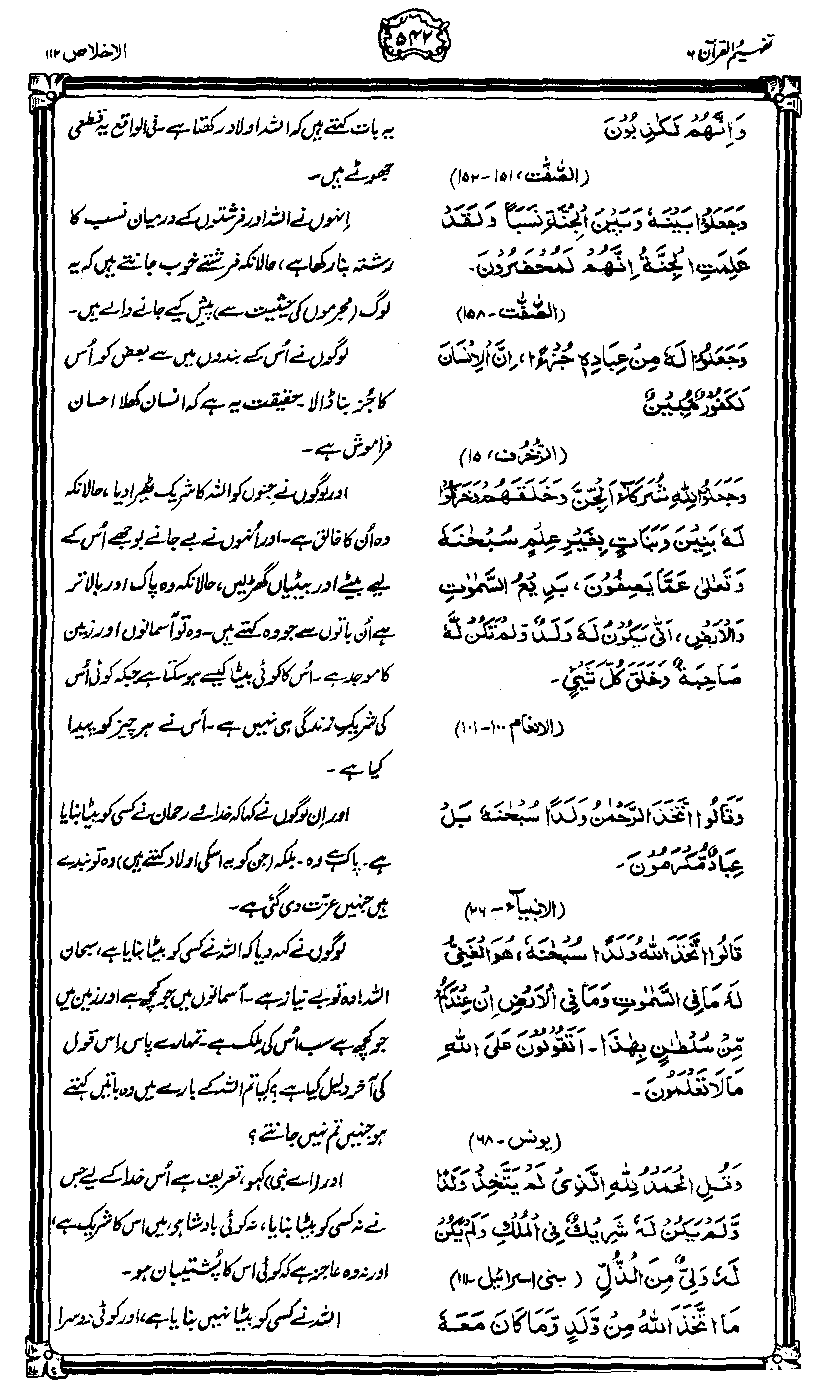 تفہیم القرآن ۶
۵۴۲
الاخلاص ۱۱۲
وَاِنَّهُمْ لَكٰذِبُوْنَ
(الصّٰفّٰت، ۱۵۱-۱۵۲)
وَجَعَلُوْا بَيْنَهٗ وَبَيْنَ الْجِنَّةِ نَسَبًا وَلَقَدْ
عَلِمَتِ الْجِنَّةُ اِنَّهُمْ لَمُحْضَرُوْنَ۔
(الصّٰفّٰت-۱۵۸)
وَجَعَلُوْا لَهٗ مِنْ عِبَادِهٖ جُزْءًا، اِنَّ الْاِنْسَانَ
لَكَفُوْرٌ مُّبِيْنٌ
(الزُّخْرُف، ۱۵)
وَجَعَلُوْا لِلّٰهِ شُرَكَآءَ الْجِنَّ وَخَلَقَهُمْ وَخَرَقُوْا
لَهٗ بَنِيْنَ وَبَنَاتٍ بِغَيْرِ عِلْمٍ سُبْحٰنَهٗ
وَتَعٰلٰى عَمَّا يَصِفُوْنَ، بَدِيْعُ السَّمٰوٰتِ
وَالْاَرْضِ، اَنّٰى يَكُوْنُ لَهٗ وَلَدٌ وَّلَمْ تَكُنْ لَّهٗ
صَاحِبَةٌ وَخَلَقَ كُلَّ شَيْءٍ۔
(الانعام ۱۰۰-۱۰۱)
وَقَالُوا اتَّخَذَ الرَّحْمٰنُ وَلَدًا سُبْحٰنَهٗ بَلْ
عِبَادٌ مُّكْرَمُوْنَ۔
(الانبیآء-۲۶)
قَالُوا اتَّخَذَ اللّٰهُ وَلَدًا سُبْحٰنَهٗ، هُوَ الْغَنِيُّ
لَهٗ مَا فِي السَّمٰوٰتِ وَمَا فِي الْاَرْضِ اِنْ عِنْدَكُمْ
مِّنْ سُلْطٰنٍ بِهٰذَا۔ اَتَقُوْلُوْنَ عَلَى اللّٰهِ
مَا لَا تَعْلَمُوْنَ۔
(یونس-۶۸)
وَقُلِ الْحَمْدُ لِلّٰهِ الَّذِيْ لَمْ يَتَّخِذْ وَلَدًا
وَّلَمْ يَكُنْ لَهٗ شَرِيْكٌ فِي الْمُلْكِ وَلَمْ يَكُنْ
لَهٗ وَلِيٌّ مِنَ الذُّلِّ (بنی اسرائیل-۱۱۱)
مَا اتَّخَذَ اللّٰهُ مِنْ وَّلَدٍ وَّمَا كَانَ مَعَهٗ
یہ بات کہتے ہیں کہ اللہ اولاد رکھتا ہے۔ فی الواقع یہ قطعی
جھوٹے ہیں۔
اِنہوں نے اللہ اور فرشتوں کے درمیان نسب کا
رشتہ بنا رکھا ہے، حالانکہ فرشتے خوب جانتے ہیں کہ یہ
لوگ (مجرموں کی حیثیت سے) پیش کیے جانے والے ہیں۔
لوگوں نے اُس کے بندوں میں سے بعض کو اُس
کا جُز بنا ڈالا۔ حقیقت یہ ہے کہ انسان کھلا احسان
فراموش ہے۔
اور لوگوں نے جنوں کو اللہ کا شریک ٹھیرا دیا، حالانکہ
وہ اُن کا خالق ہے۔ اور اُنہوں نے بے جانے بوجھے اُس کے
لیے بیٹے اور بیٹیاں گھڑ لیں، حالانکہ وہ پاک اور بالاتر
ہے اُن باتوں سے جو وہ کہتے ہیں۔ وہ تو آسمانوں اور زمین
کا موجد ہے۔ اُس کا کوئی بیٹا کیسے ہو سکتا ہے جبکہ کوئی اُس
کی شریکِ زندگی ہی نہیں ہے۔ اُس نے ہر چیز کو پیدا
کیا ہے۔
اور اِن لوگوں نے کہا کہ خدائے رحمان نے کسی کو بیٹا بنایا
ہے۔ پاک ہے وہ۔ بلکہ (جن کو یہ اسکی اولاد کہتے ہیں) وہ تو بندے
ہیں جنہیں عزت دی گئی ہے۔
لوگوں نے کہہ دیا کہ اللہ نے کسی کو بیٹا بنایا ہے، سبحان
اللہ! وہ تو بے نیاز ہے۔ آسمانوں میں جو کچھ ہے اور زمین میں
جو کچھ ہے سب اُس کی مِلک ہے۔ تمہارے پاس اِس قول
کی آخر دلیل کیا ہے؟ کیا تم اللہ کے بارے میں وہ باتیں کہتے
ہو جنہیں تم نہیں جانتے؟
اور (اے نبی) کہو، تعریف ہے اُس خدا کے لیے جس
نے نہ کسی کو بیٹا بنایا، نہ کوئی بادشاہی میں اس کا شریک ہے،
اور نہ وہ عاجز ہے کہ کوئی اس کا پُشتیبان ہو۔
اللہ نے کسی کو بیٹا نہیں بنایا ہے، اور کوئی دوسرا